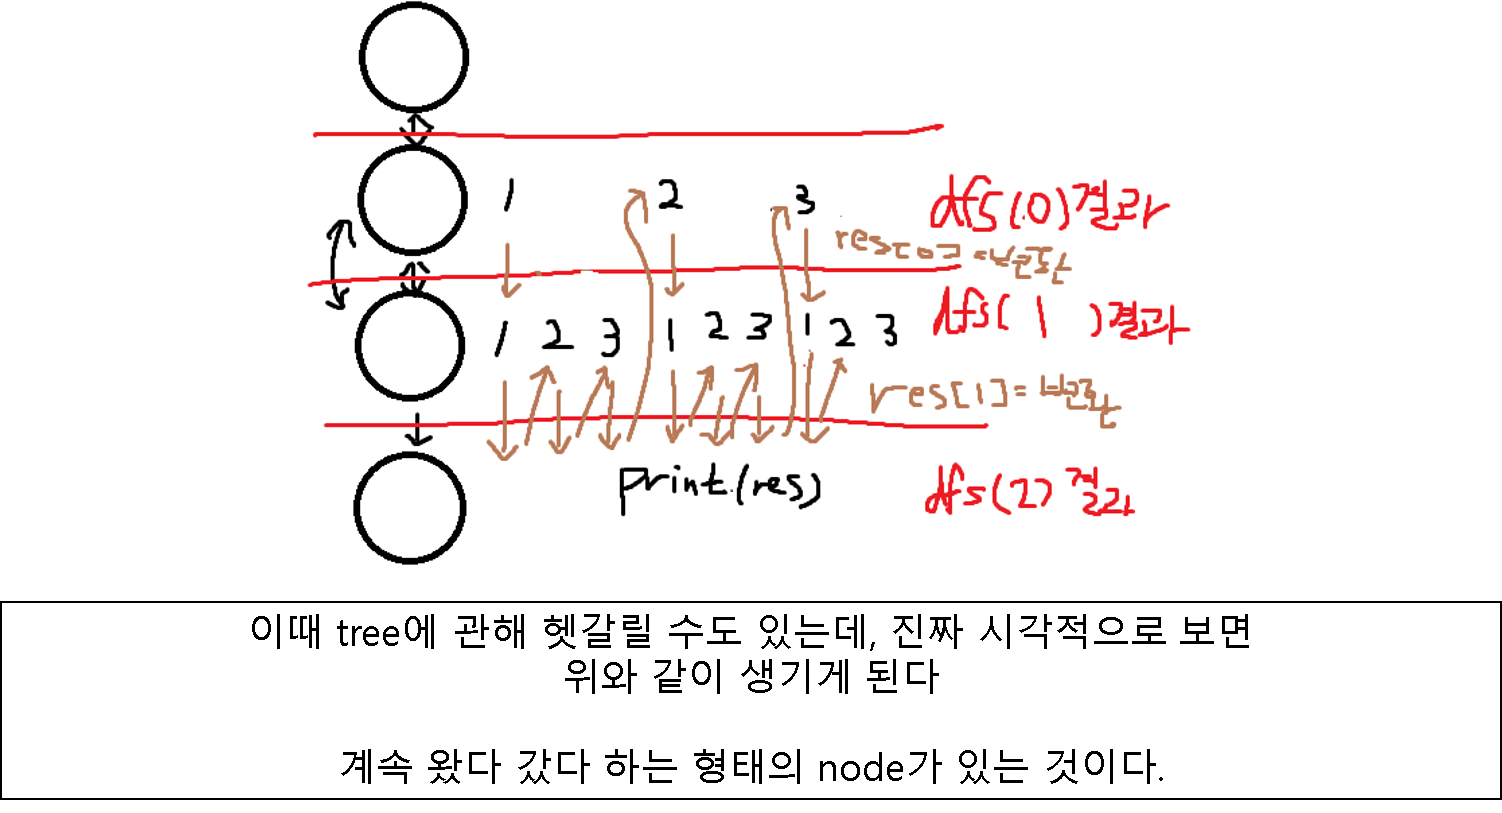 1 2 3 dfs(0)결과
res[0]=부분환
1 2 3 1 2 3 1 2 3 dfs(1)결과
res[1]=부분환
print(res) dfs(2)결과
이때 tree에 관해 헷갈릴 수도 있는데, 진짜 시각적으로 보면
위와 같이 생기게 된다
계속 왔다 갔다 하는 형태의 node가 있는 것이다.